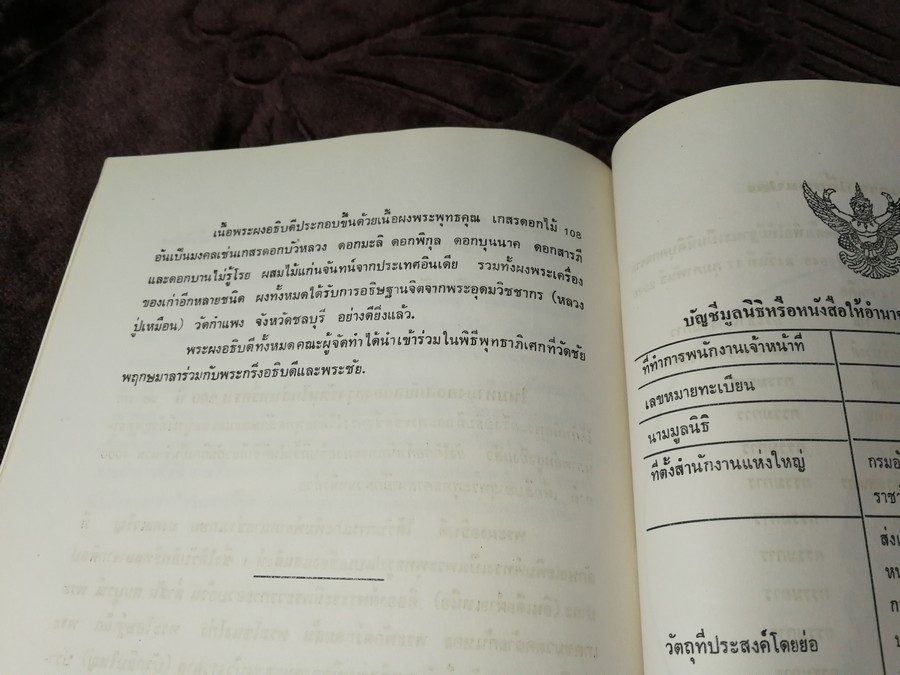 เนื้อพระผงอธิบดีประกอบขึ้นด้วยเนื้อผงพระพุทธคุณ เกสรดอกไม้ 108
อันเป็นมงคลเช่นเกสรดอกบัวหลวง ดอกมะลิ ดอกพิกุล ดอกบุนนาค ดอกสารภี
และดอกบานไม่รู้โรย ผสมไม้แก่นจันทน์จากประเทศอินเดีย รวมทั้งผงพระเครื่อง
ของเก่าอีกหลายชนิด ผงทั้งหมดได้รับการอธิษฐานจิตจากพระอุดมวิชชากร (หลวง
ปู่เหมือน) วัดกำแพง จังหวัดชลบุรี อย่างดียิ่งแล้ว.
พระผงอธิบดีทั้งหมดคณะผู้จัดทำได้นำเข้าร่วมในพิธีพุทธาภิเศกที่วัดชัย
พฤกษมาลาร่วมกับพระกริ่งอธิบดีและพระชัย.
บัญชีมูลนิธิหรือหนังสือให้อำนาจ
ที่ทำการพนักงานเจ้าหน้าที่
เลขหมายทะเบียน
นามมูลนิธิ
ที่ตั้งสำนักงานแห่งใหญ่
วัตถุที่ประสงค์โดยย่อ